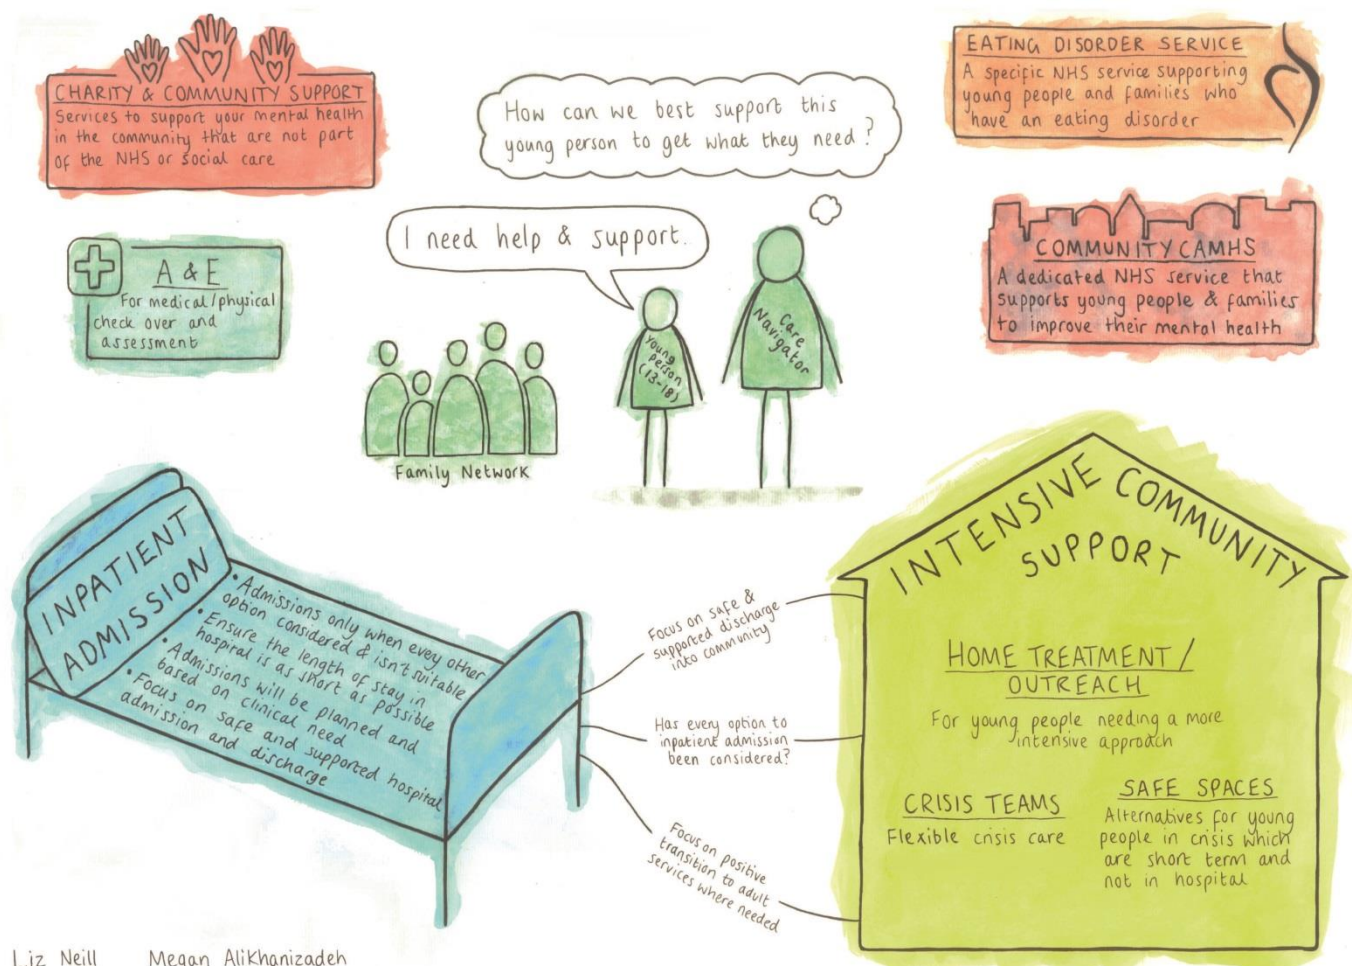 CHARITY & COMMUNITY SUPPORT
Services to support your mental health
in the community that are not part
of the NHS or social care
How can we best support this
young person to get what they need?
EATING DISORDER SERVICE
A specific NHS service supporting
young people and families who
have an eating disorder
A & E
For medical/physical
check over and
assessment
I need help & support.
COMMUNITY CAMHS
A dedicated NHS service that
supports young people & families
to improve their mental health
Young
person
(13-18)
Care
Navigator
Family Network
INPATIENT
ADMISSION
• Admissions only when every other
option considered & isn't suitable
• Ensure the length of stay in
hospital is as short as possible
• Admissions will be planned and
based on clinical need
• Focus on safe and supported hospital
admission and discharge
Focus on safe &
supported discharge
into community
Has every option to
inpatient admission
been considered?
Focus on positive
transition to adult
services where needed
INTENSIVE COMMUNITY
SUPPORT
HOME TREATMENT/
OUTREACH
For young people needing a more
intensive approach
CRISIS TEAMS
Flexible crisis care
SAFE SPACES
Alternatives for young
people in crisis which
are short term and
not in hospital
Liz Neill Megan Alikhanizadeh